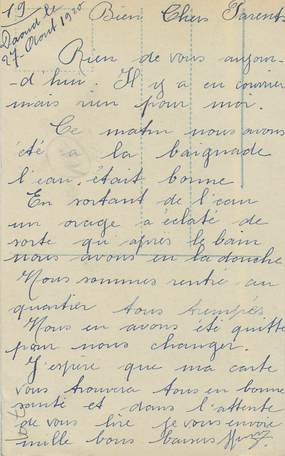 19
Daoud le
27 Aout 1920
Bien Chers Parents
Rien de vous aujour-
-d'hui. Il y a eu courrier
mais rien pour moi.
Ce matin nous avons
été à la baignade
l'eau était bonne
En sortant de l'eau
un orage a éclaté de
sorte qu'après le bain
nous avons eu la douche
Nous sommes rentré au
quartier tous trempés.
Nous en avons été quitte
pour nous changer.
J'espère que ma carte
vous trouvera tous en bonne
santé et dans l'attente
de vous lire je vous envoie
mille bons baisers